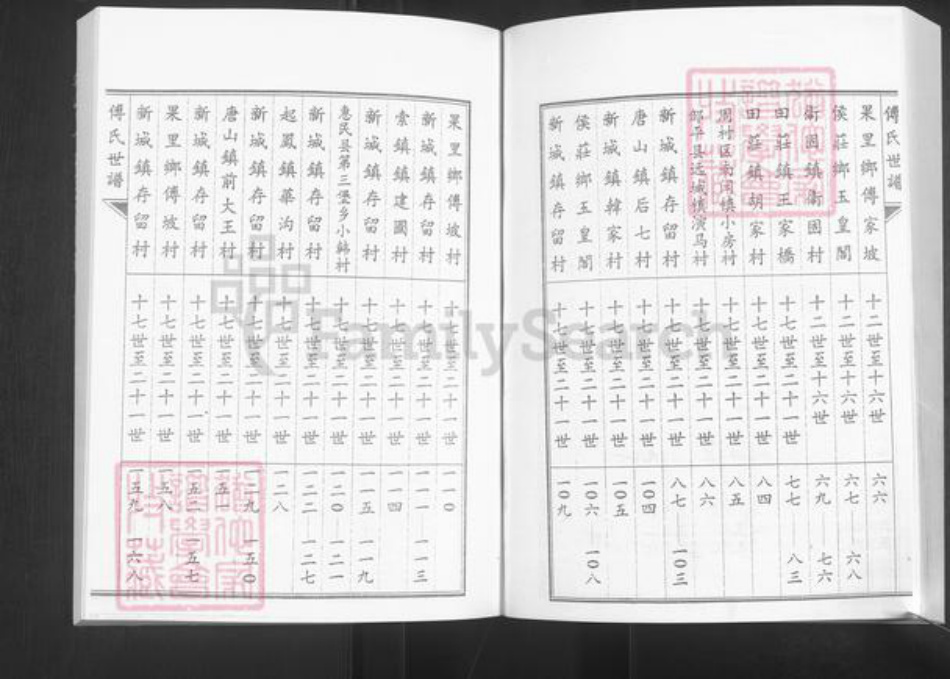 傅氏世譜
果里鄉傅家坡 十二世至十六世 六六
侯莊鄉玉皇閣 十二世至十六世 六七——六八
衛固鎮衛固村 十二世至十六世 六九——七六
田莊鎮王家橋 十七世至二十一世 七七——八三
田莊鎮胡家村 十七世至二十一世 八四
周村区南闫镇小房村 十七世至二十一世 八五
邹平县远城镇演马村 十七世至二十一世 八六
新城鎮存留村 十七世至二十一世 八七——一〇三
唐山鎮后七村 十七世至二十一世 一〇四
新城鎮韓家村 十七世至二十一世 一〇五
侯莊鄉玉皇閣 十七世至二十一世 一〇六——一〇八
新城鎮存留村 十七世至二十一世 一〇九
果里鄉傅坡村 十七世至二十一世 一一〇
新城鎮存留村 十七世至二十一世 一一一——一一三
索鎮鎮建國村 十七世至二十一世 一一四
新城鎮存留村 十七世至二十一世 一一五——一一九
惠民县第三堡乡小 村 十七世至二十一世 一二〇——一二一
新城鎮存留村 十七世至二十一世 一二二——一二七
起鳳鎮華沟村 十七世至二十一世 一二八
新城鎮存留村 十七世至二十一世 一二九——一五〇
唐山鎮前大王村 十七世至二十一世 一五一
新城鎮存留村 十七世至二十一世 一五二——一五七
果里鄉傅坡村 十七世至二十一世 一五八
新城鎮存留村 十七世至二十一世 一五九——一六八
傅氏世譜
FamilySearch